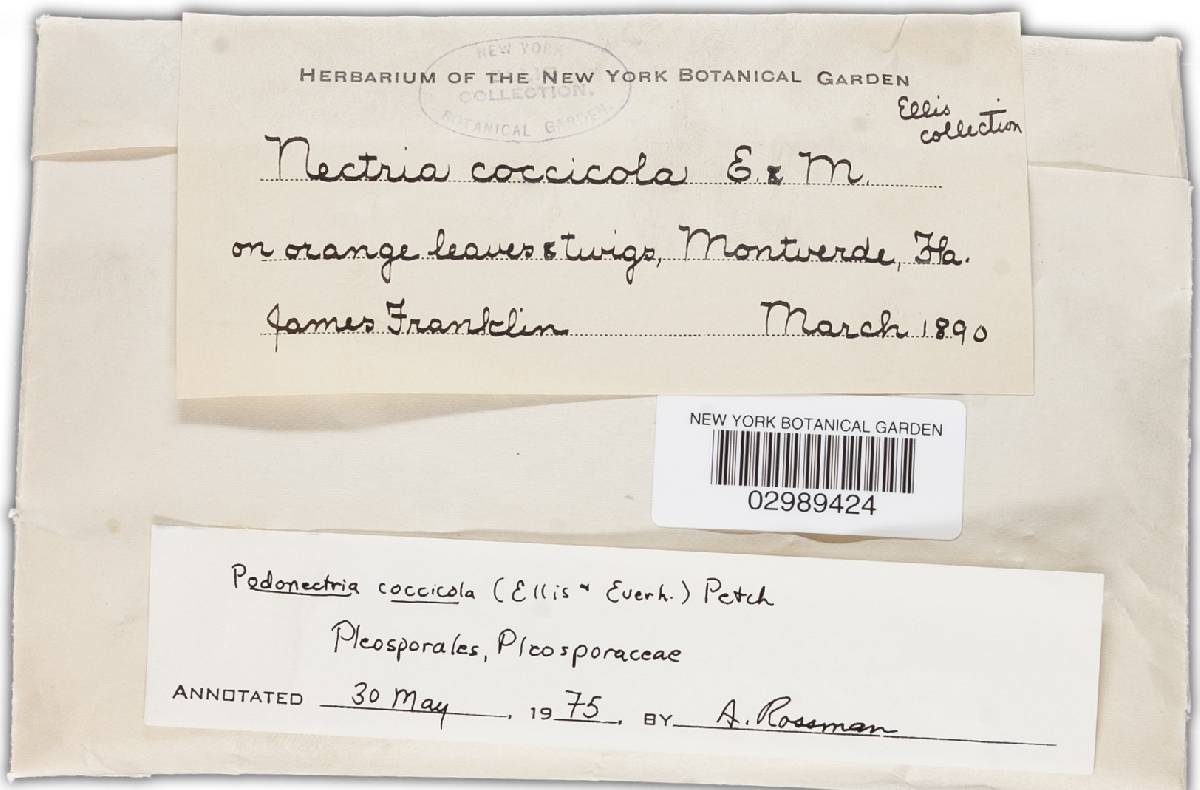 NEW YORK
COLLECTION.
BOTANICAL GARDEN.
HERBARIUM OF THE NEW YORK BOTANICAL GARDEN
Ellis
collection
Nectria coccicola E. & M.
on orange leaves & twigs, Montverde, Fla.
James Franklin March 1890
NEW YORK BOTANICAL GARDEN
02989424
Podonectria coccicola (Ellis & Everh.) Petch
Pleosporales, Pleosporaceae
ANNOTATED 30 May, 1975. BY A. Rossman